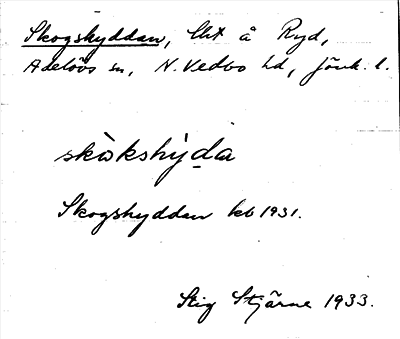 Skogshyddan, lht å Ryd,
Adelövs sn, N. Vedbo hd, Jönk. l.
skòkshỳda
Skogshyddan kb 1931.
Stig Stjärne 1933.